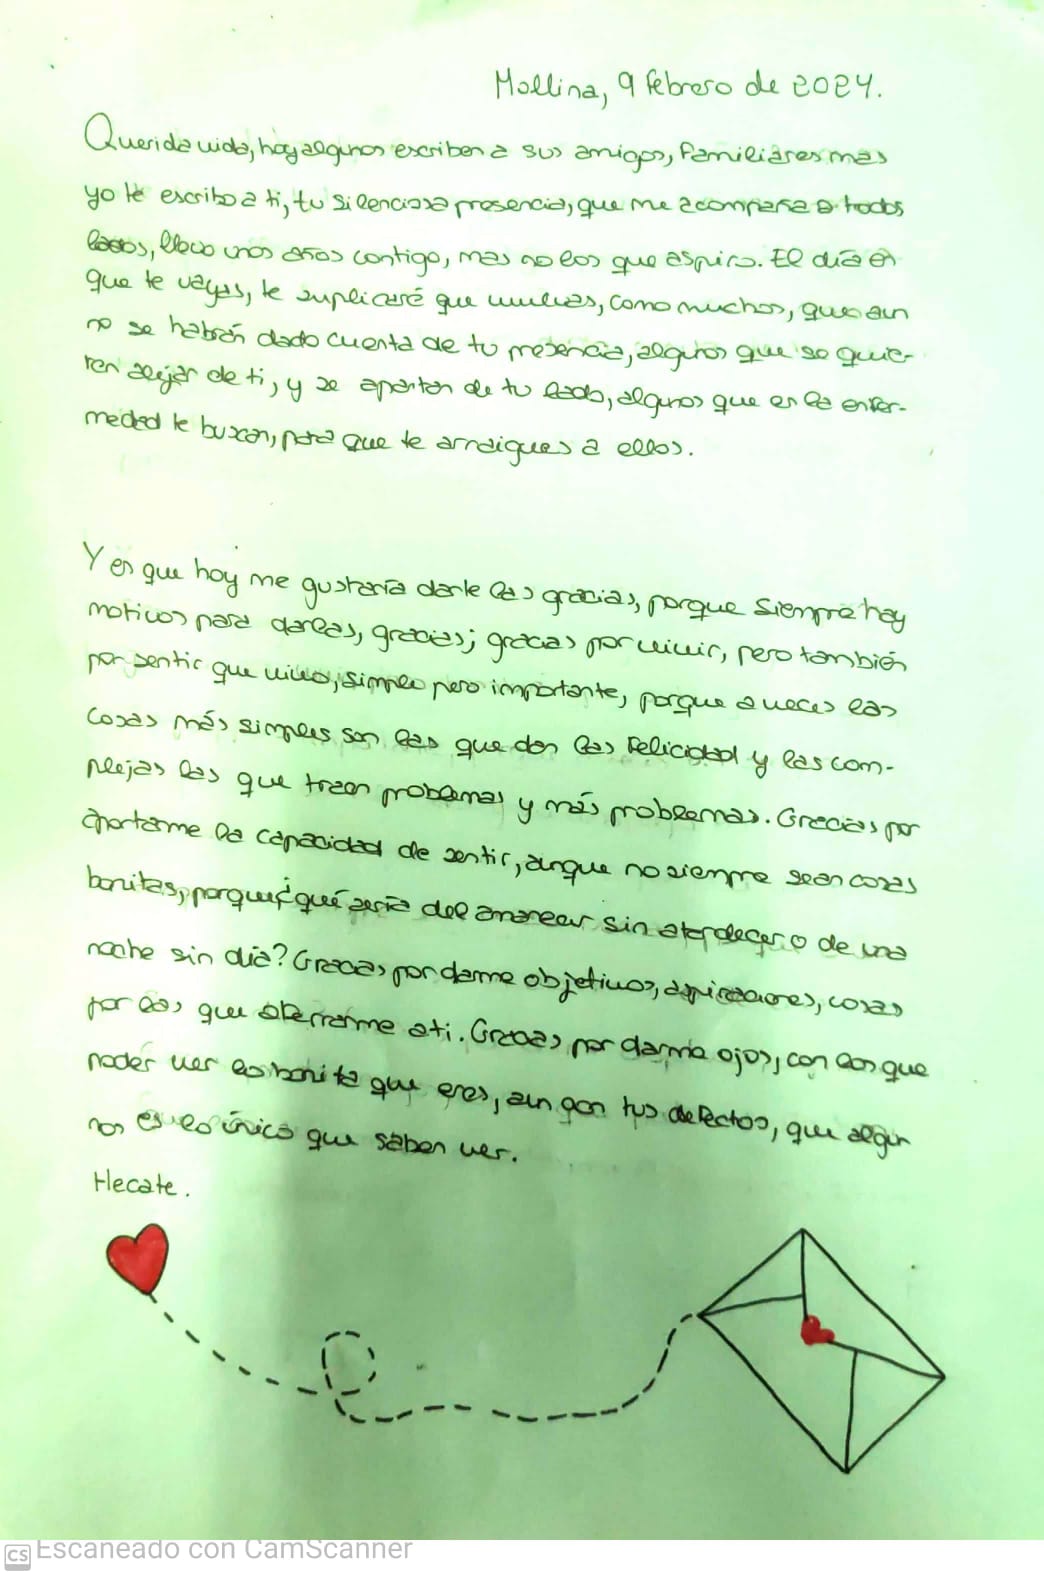 Mollina, 9 febrero de 2024.
Querida vida, hoy algunos escriben a sus amigos, familiares mas
yo te escribo a ti, tu silenciosa presencia, que me acompaña a todos
lados, llevo unos años contigo, mas no los que aspiro. El día en
que te vayas, te suplicaré que vuelvas, como muchos, que aun
no se habrán dado cuenta de tu presencia, algunos que se quie-
ren alejar de ti, y se apartan de tu lado, algunos que en la enfer-
medad te buscan, para que te arraigues a ellos.
Y es que hoy me gustaría darte las gracias, porque siempre hay
motivos para darlas, gracias; gracias por vivir, pero también
por sentir que vivo, simple pero importante, porque a veces las
cosas más simples son las que dan las felicidad y las com-
plejas las que traen problemas y más problemas. Gracias por
aportarme la capacidad de sentir, aunque no siempre sean cosas
bonitas, porque ¿qué sería del amanecer sin atardecer o de una
noche sin día? Gracias por darme objetivos, aspiraciones, cosas
por las que aferrarme a ti. Gracias por darme ojos, con los que
poder ver lo bonita que eres, aun con tus defectos, que algun
nos es lo único que saben ver.
Hecate.
CS Escaneado con CamScanner